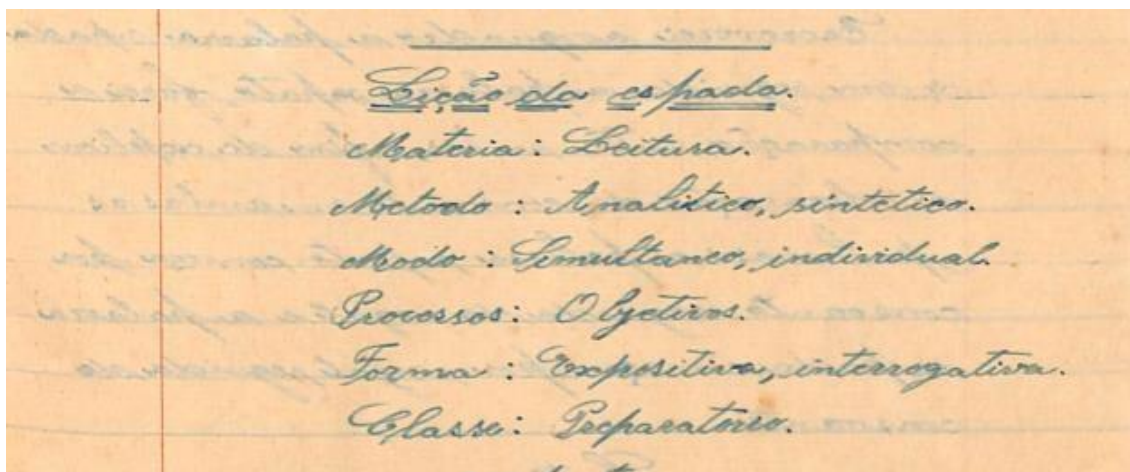 Lição da espada.
Materia: Leitura.
Metodo: Analitico, sintetico.
Modo: Simultaneo, individual.
Processos: Objetivos.
Forma: Expositiva, interrogativa.
Classe: Preparatorio.